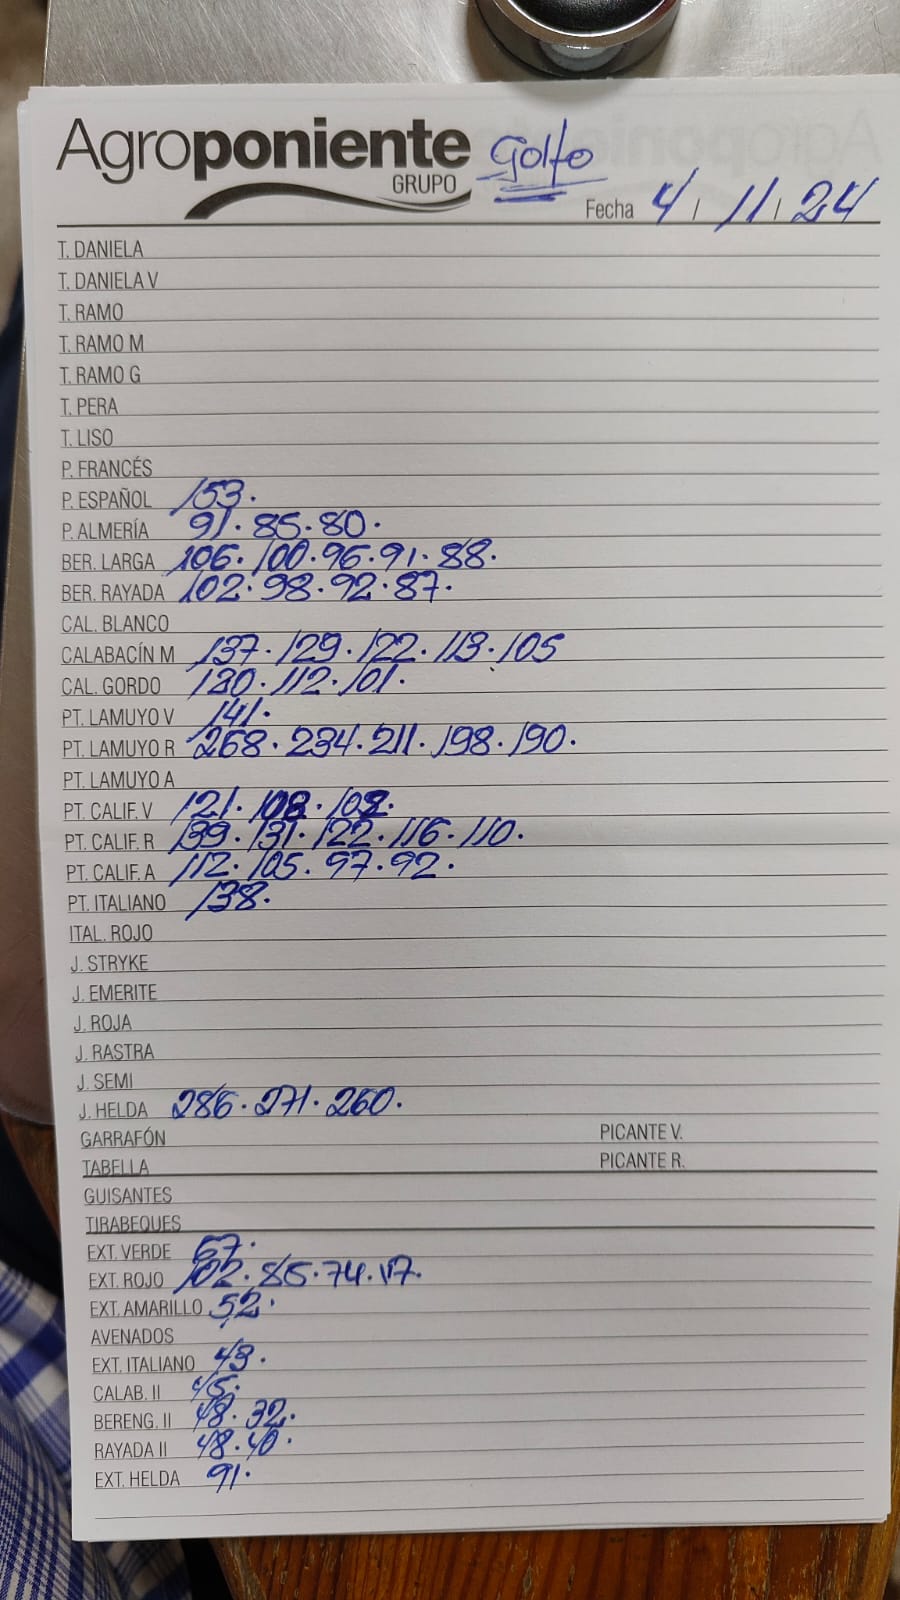 Agroponiente Golfo
GRUPO
Fecha 4 / 11 / 24
T. DANIELA
T. DANIELA V
T. RAMO
T. RAMO M
T. RAMO G
T. PERA
T. LISO
P. FRANCÉS
P. ESPAÑOL 153.
P. ALMERÍA 91. 85. 80.
BER. LARGA 106. 100. 96. 91. 88.
BER. RAYADA 102. 98. 92. 87.
CAL. BLANCO
CALABACÍN M 137. 129. 122. 113. 105
CAL. GORDO 120. 112. 101.
PT. LAMUYO V 141.
PT. LAMUYO R 268. 234. 211. 198. 190.
PT. LAMUYO A
PT. CALIF. V 121. 108.
PT. CALIF. R 139. 131. 122. 116. 110.
PT. CALIF. A 112. 105. 97. 92.
PT. ITALIANO 138.
ITAL. ROJO
J. STRYKE
J. EMERITE
J. ROJA
J. RASTRA
J. SEMI
J. HELDA 286. 271. 260.
GARRAFÓN PICANTE V.
TABELLA PICANTE R.
GUISANTES
TIRABEQUES
EXT. VERDE 67.
EXT. ROJO 102. 85. 74.
EXT. AMARILLO 52.
AVENADOS
EXT. ITALIANO 43.
CALAB. II 45.
BERENG. II 48. 32.
RAYADA II 48. 40.
EXT. HELDA 91.